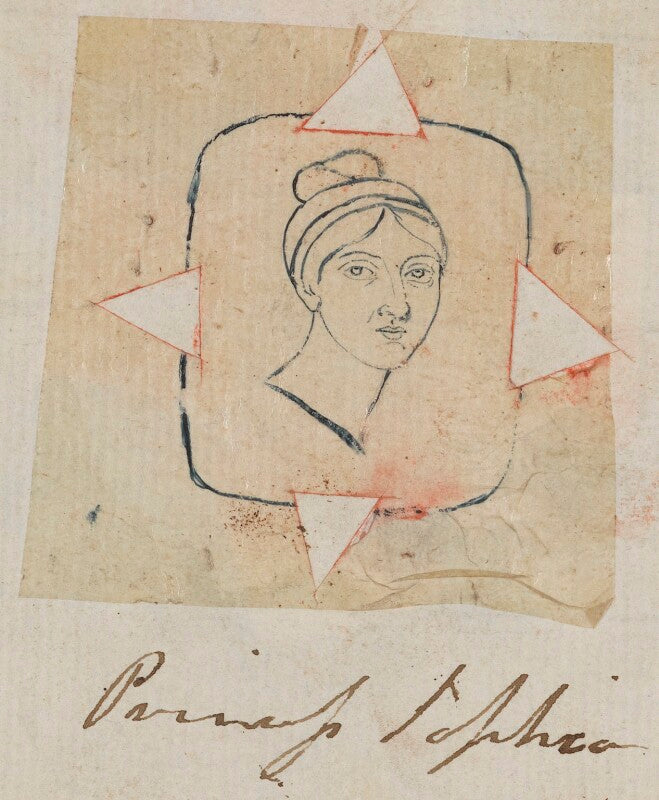 Princess Sophia